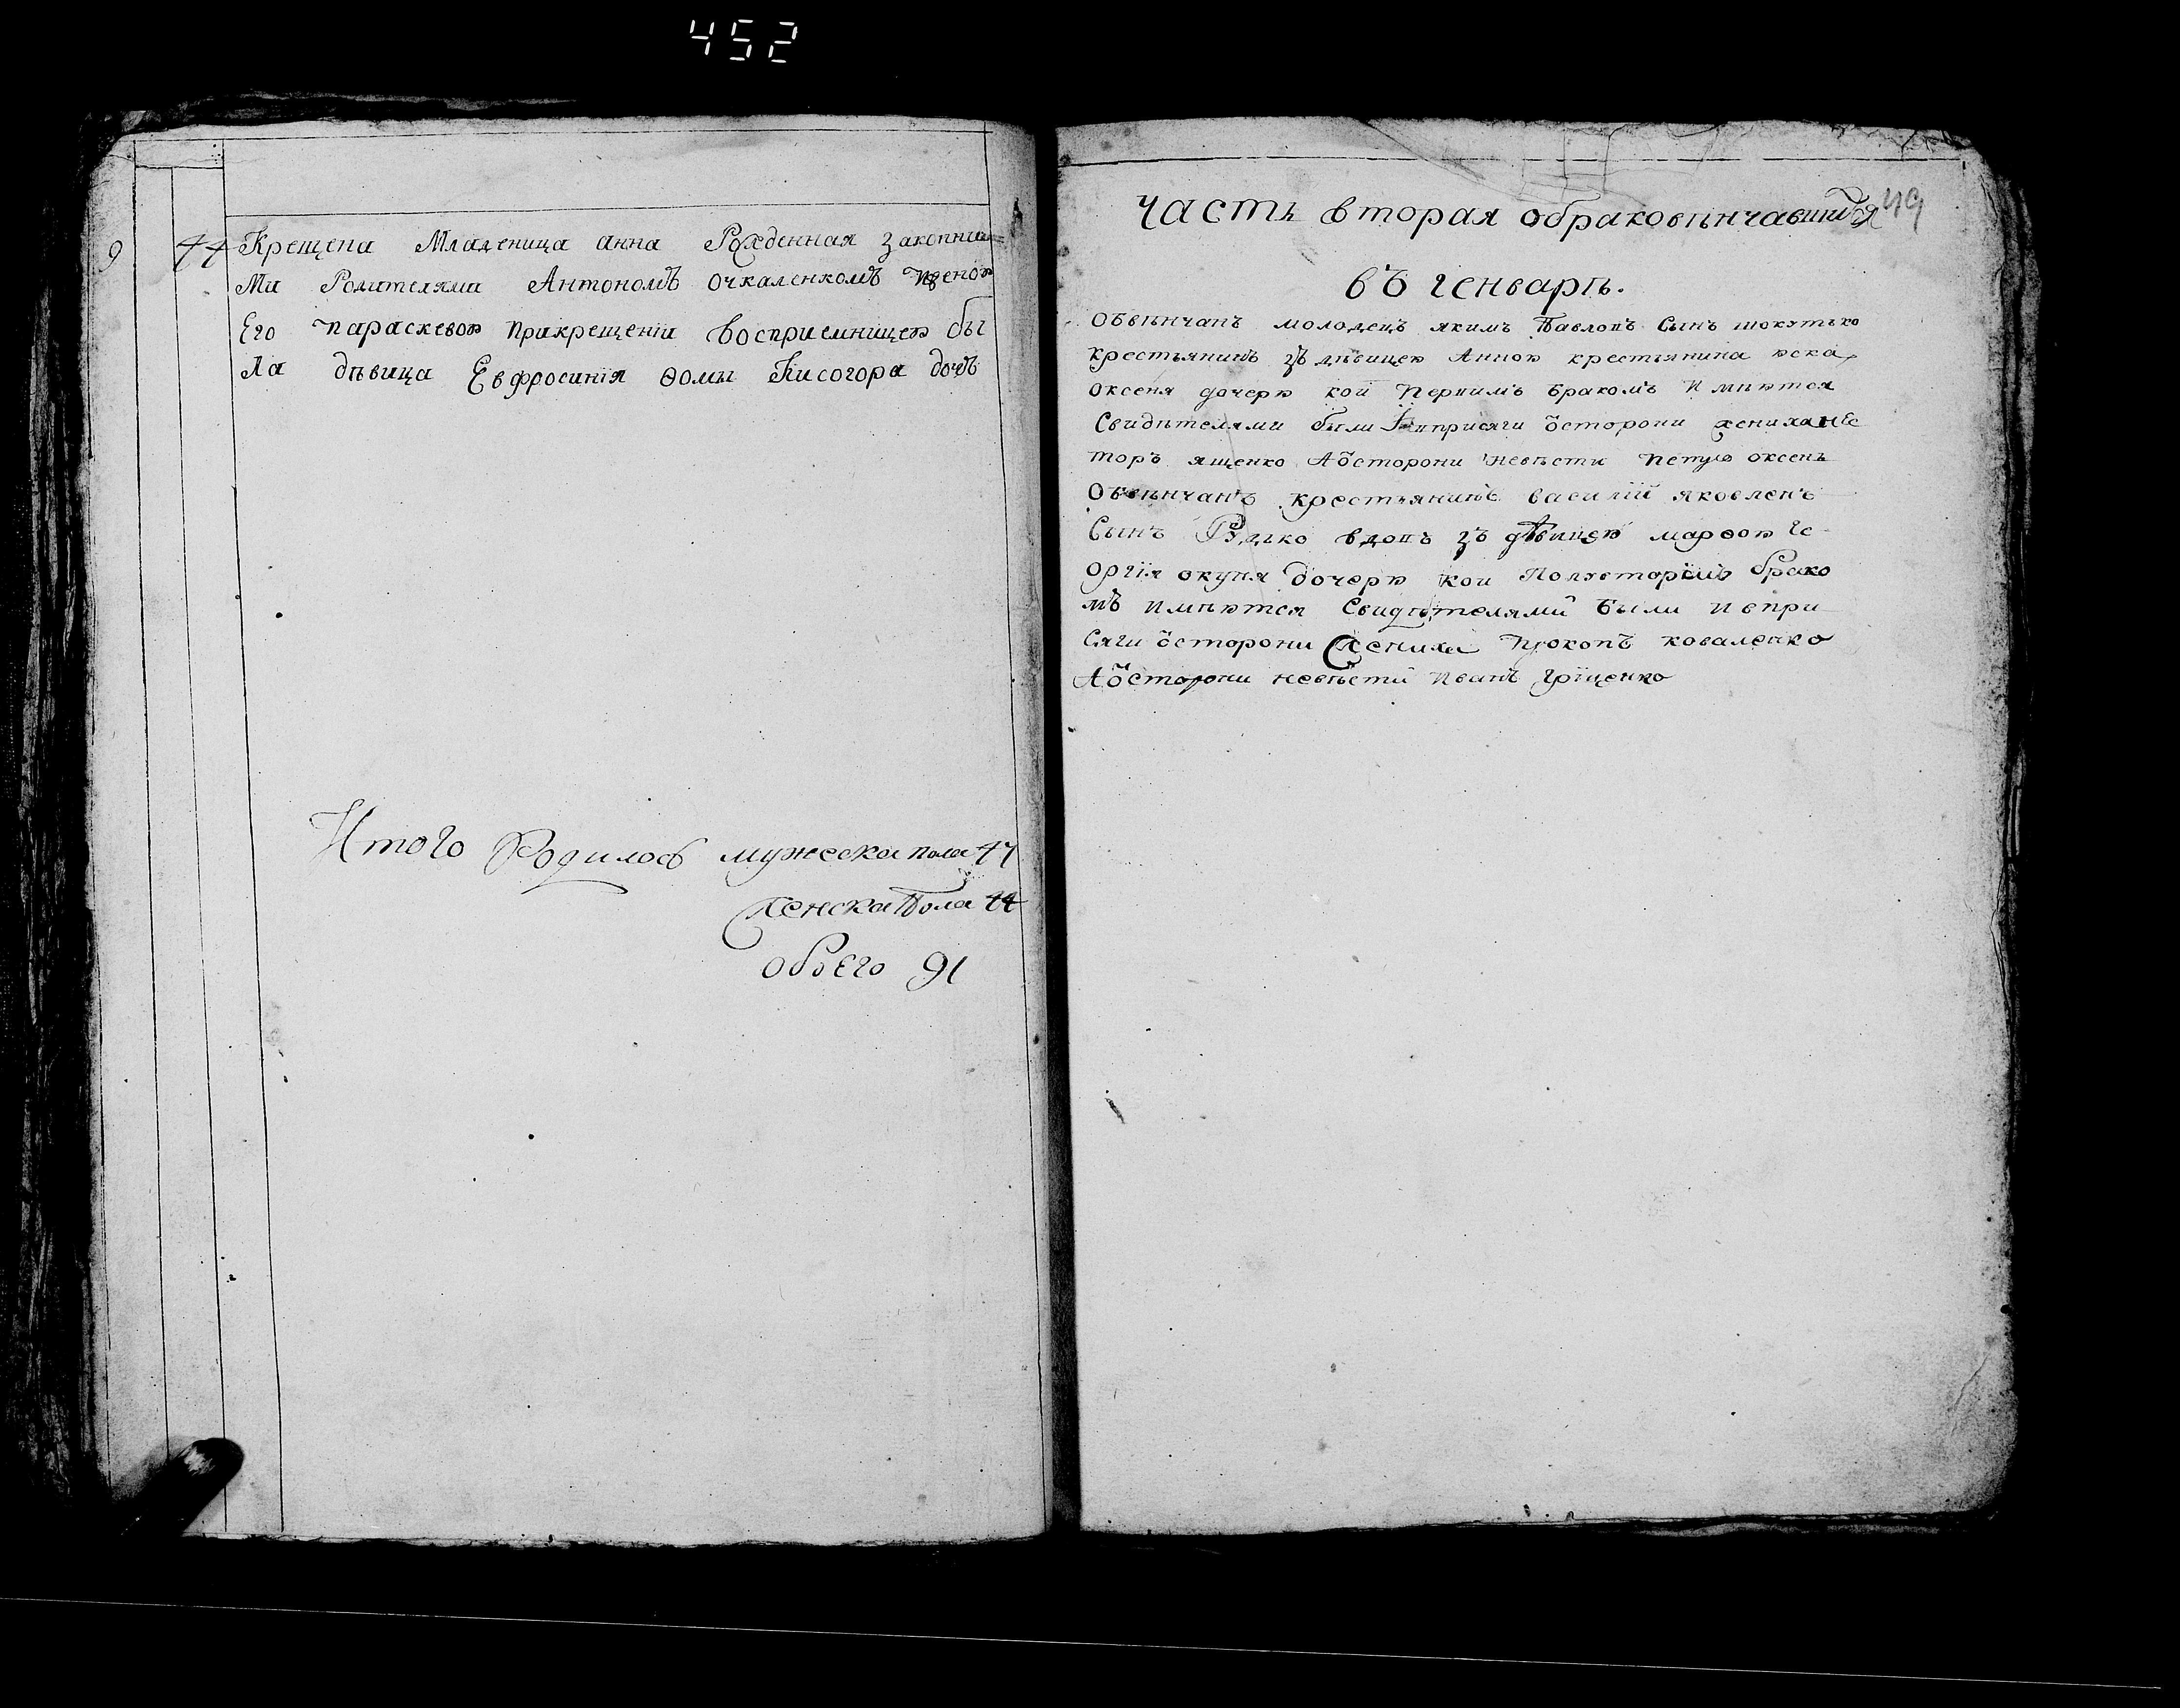 452
9 44 Крещена Младеница анна Рожденная законни=
ми Родителями Антономъ Очкаленкомъ
Его параскевою прикрещенiи восприемницею бы
ла дѣвица Евфросинiя Ѳомы Кисогора дочь
Итого Родилось мужеска пола 47
женска Пола 44
обоего 91
49
Часть вторая обраковѣнчавшихся
въ генварѣ.
Обвѣнчанъ молодецъ якимъ Павловъ Сынъ
крестьянинъ зъ дѣвицею Анною крестьянина
оксеня дочерю кои первимъ бракомъ имѣются
Свидѣтелями были ѿсторони жениха Нес
торъ ященко Аѿсторони невѣсти оксенъ
Обвѣнчанъ крестьянинъ василiй яковлевъ
Сынъ вдовъ зъ дѣвицею марѳою Ге
оргiя окуня дочерю кои Полуторимъ брако
мъ имѣются Свидѣтелями были ивпри
сяги ѿсторони жениха прокопъ коваленко
Аѿсторони невѣсти иванъ грiценко